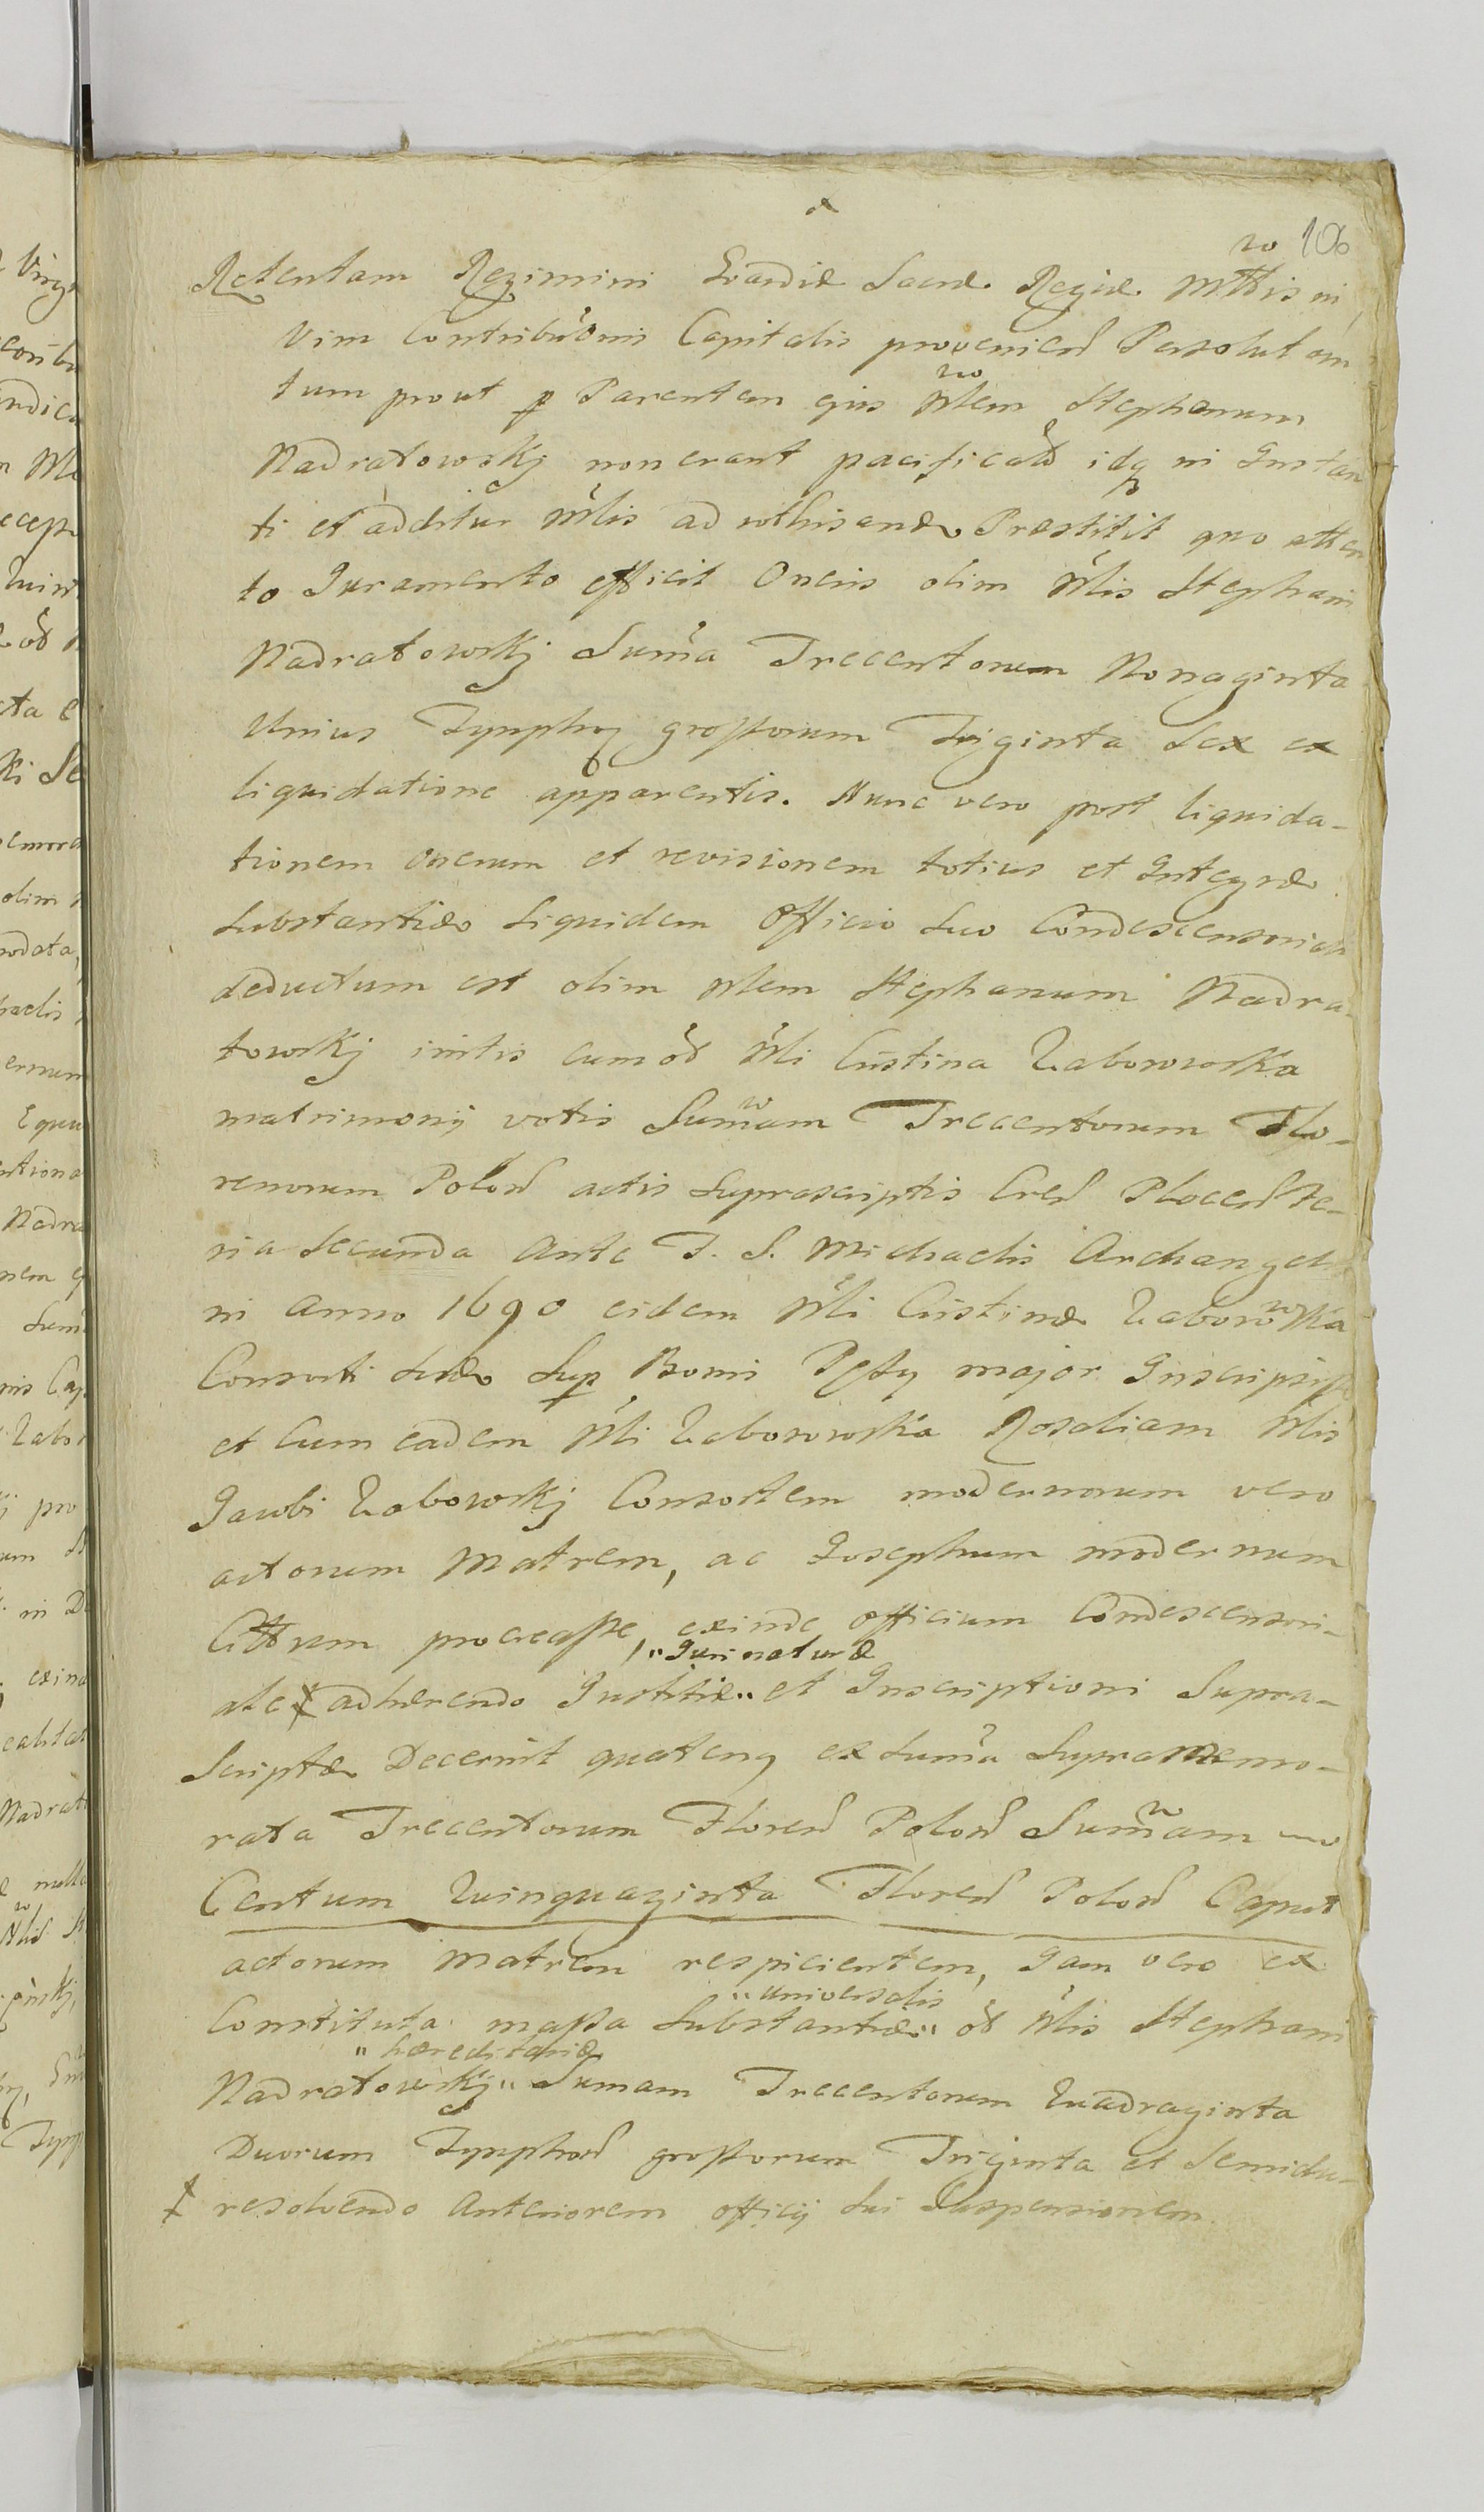 106
Retentam Regimini Gvardiæ Sacræ Regiæ Mttis in
Vim Contributõnis Capitalis provenien Persolutam
tum prout p Parentem ejus Nlem Stephanum
Nadratowskj non erant pacificata idq in Instan
ti et additur Nlis ad Præstitit quo atten
to Juramento efficit Oneris olim Nlis Stephani
Nadratowskj Suma Trecentorum Nonaginta
Unius Tynphoq grossorum Triginta Sex ex
liquidatione apparentis. Nunc vero post liquida-
tionem onerum et revisionem totius et Integræ
Substantiæ Siquidem Officio Suo Condescensoriali
deductum est olim Nlem Stephanum Nadra-
towskj initis cum od Nli Cristina Zaborowska
matrimonij votis Sumam Trecentorum Flo-
renorum Polon actis Suprascriptis Cren Plocen Fe-
ria Secunda Ante F. S. Michaelis Archangeli
in Anno 1690 eidem Nli Cristinæ Zaborowska
Consorti Suæ Sup Boni Psty major Inscripsisse
et Cum eadem Nli Zaborowska Rosaliam Nlis
Jacobi Zabowskj Consortem modernorum vero
actorum Matrem, ac Josephum modernum
Cittum procreasse, exinde officium Condescensori-
"Juri naturæ
ale ⨍ adhærendo Justitiæ" et Inscriptioni Supra-
Scriptæ Decernit quatenq ex Suma Supra Memo-
rata Trecentorum Floren Polon Sumam
Centum Quinquaginta Floren Polon Caput
actorum Matrem respicientem, Jam vero ex
"universalis
Constituta massa Substantiæ" od Nlis Stephani
"hæreditariæ
Nadratowskj" Sumam Trecentorum Quadraginta
Duorum Tynphon grossorum Triginta et Semidu-
⨍ resolvendo Anteriorem officij Sui Suspensionem